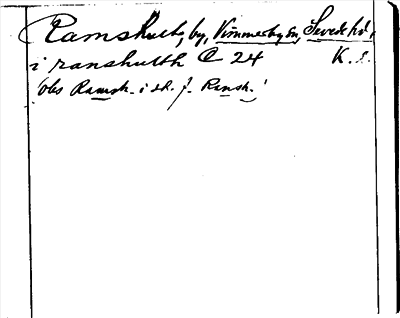 Ramshult, by, Vimmerby sn, Sevede hd,
i ranshulth C 24 K. l.
(obs Ramsh. i st. f. Ransh.!